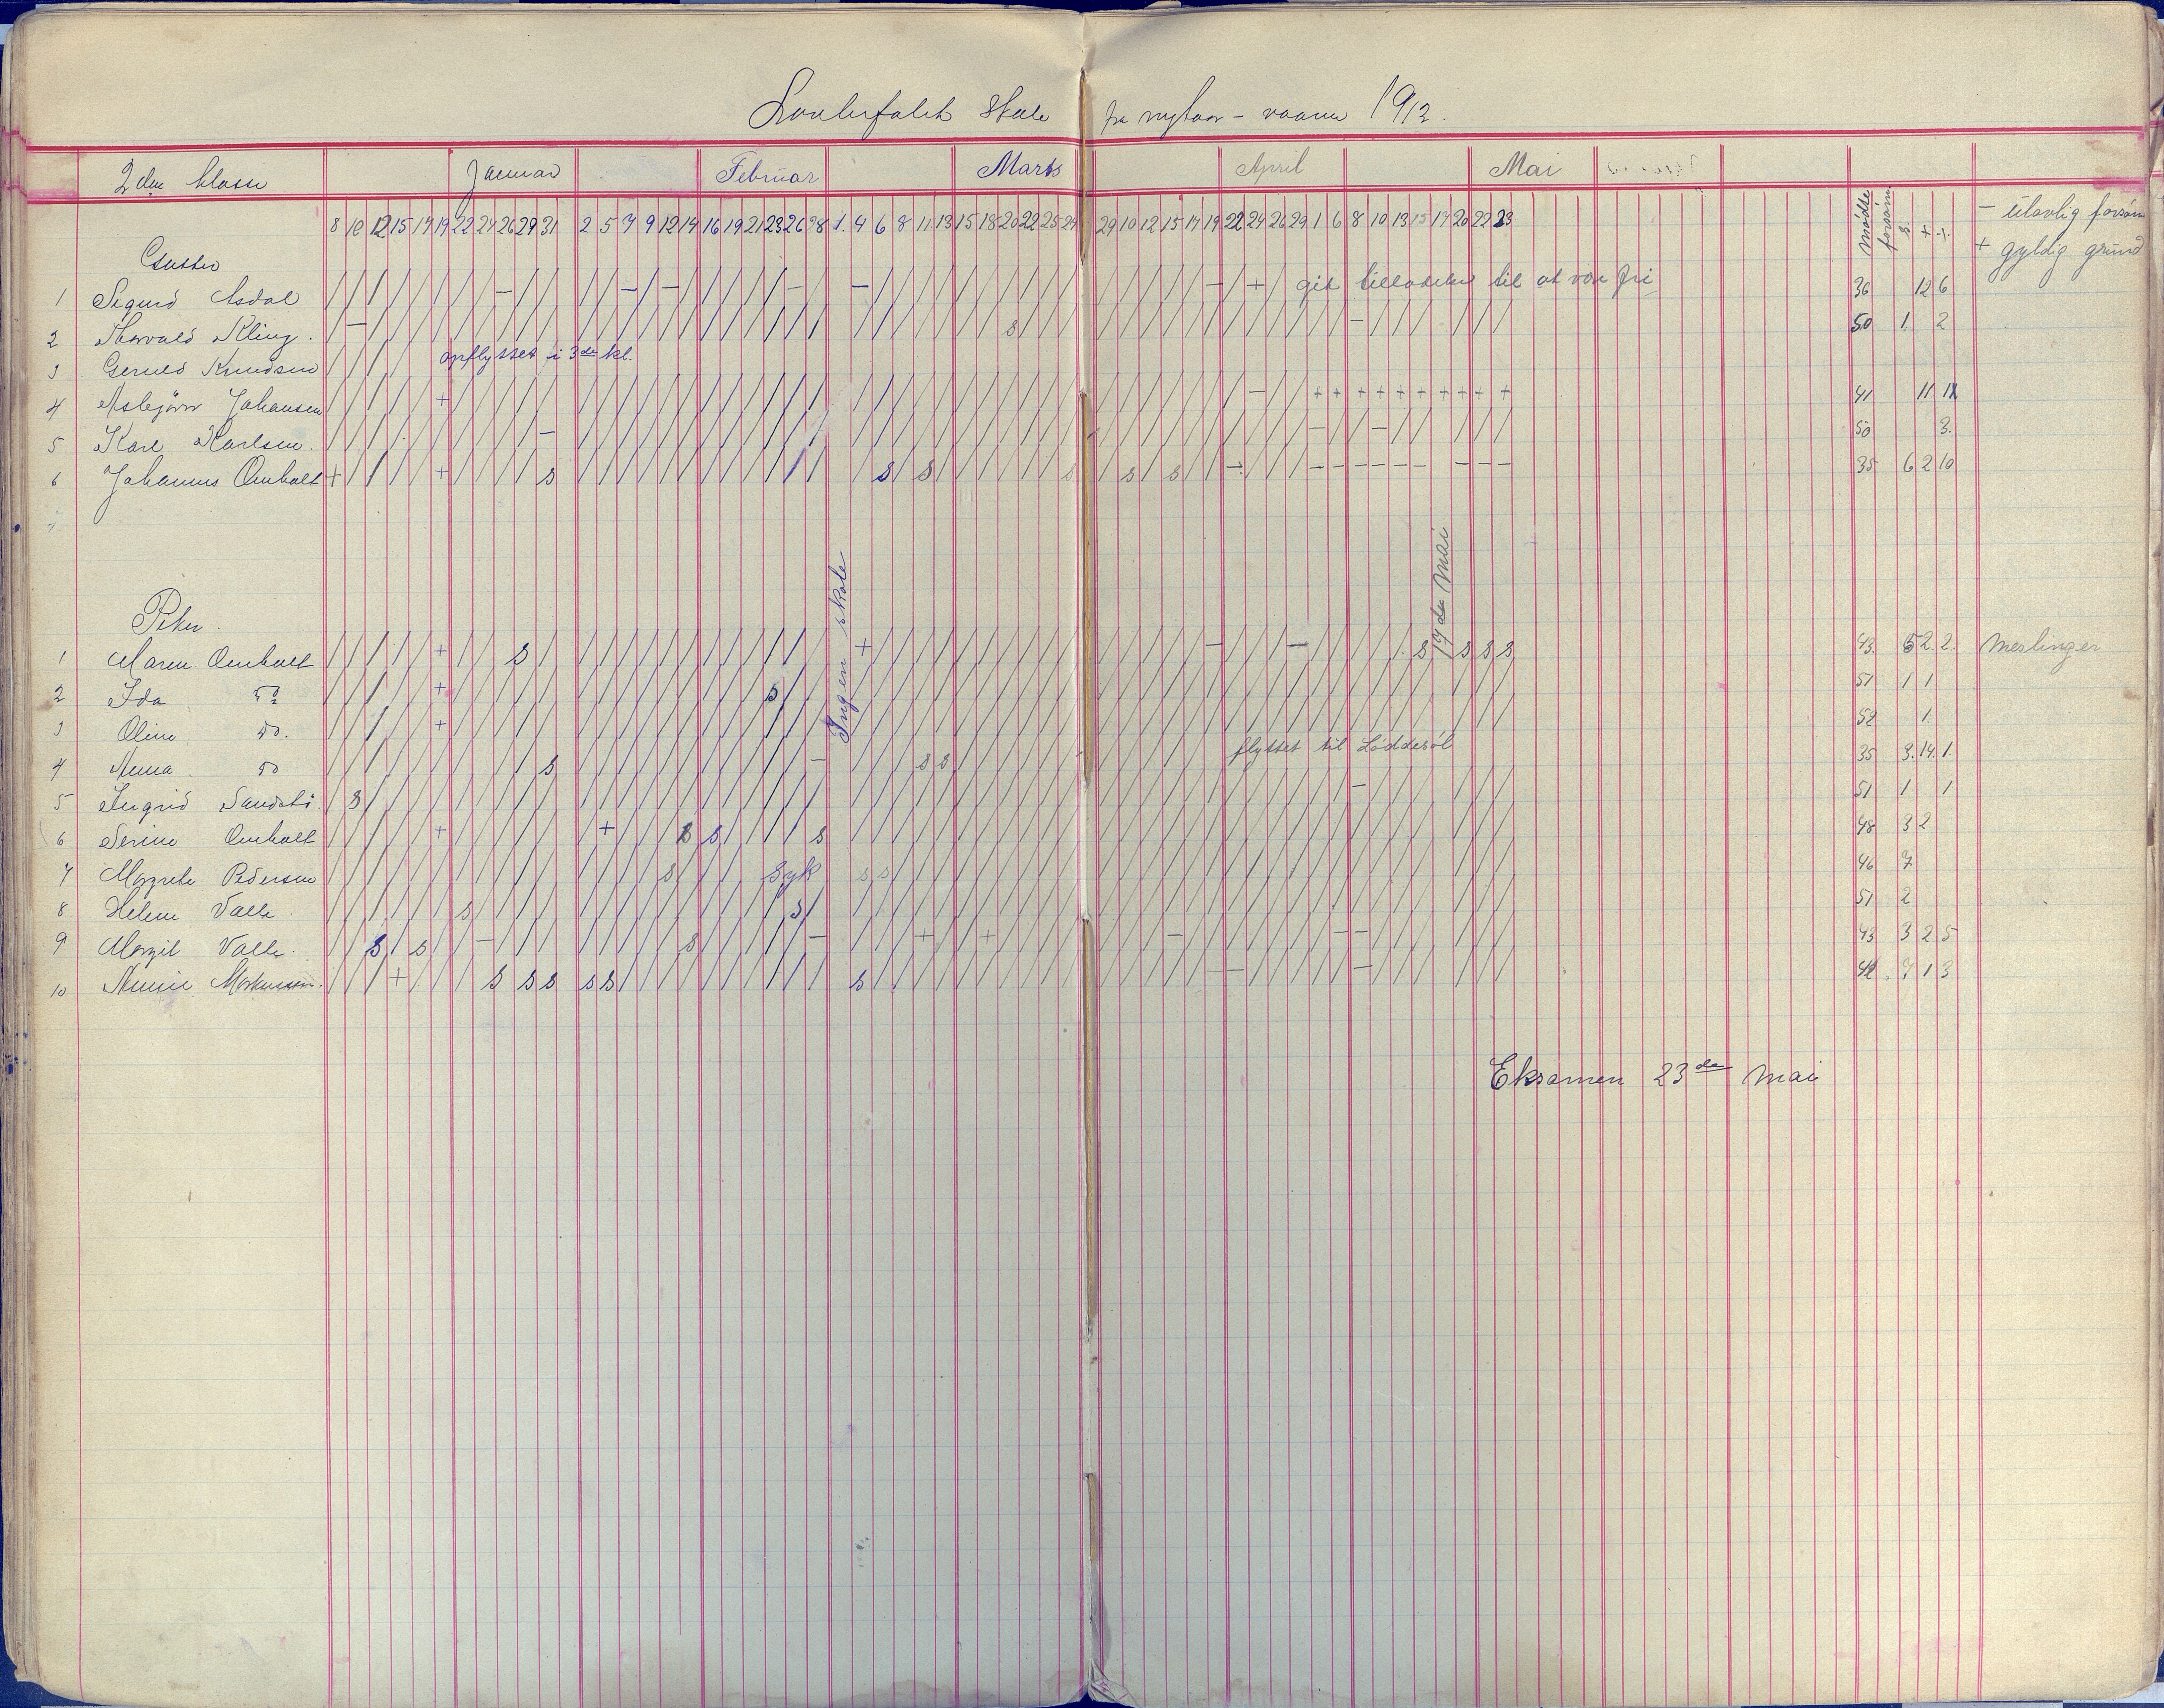 skole fra nytaar - vaaren 1912.
2den klasse Januar Februar Marts April Mai
8 10 12 15 17 19 22 24 26 29 31 2 5 7 9 12 14 16 19 21 23 26 28 1. 4 6 8 11 13 15 18 20 22 25 27 29 10 12 15 17 19 22 24 26 29 1 6 8 10 13 15 17 20 22 23 mödte forsömt s. + -
- ulovlig forsöm
+ gyldig grund
Gutter
1 Sigurd Asdal / / / / / / / / - / / / / - / - / / / / / - / - / / / / / / / / / / / / / / / / - / + / git tilladelse til at være fri 36 12 6
2 Thorvald Kling. / - / / / / / / / / / / / / / / / / / / / / / / / / / / / / / s / / / / / / / / / / / / / / / - / / / / / / 50 1. 2
3 Gerhard Knudsen / / / / opflyttet i 3de kl.
4 Asbjörn Johansen / / / / / + / / / / / / / / / / / / / / / / / / / / / / / / / / / / / / / / / / / / - / / + + + + + + + + + + 41 11 1
5 Karl Karlsen. / / / / / / / / / / - / / / / / / / / / / / / / / / / / / / / / / / / / / / / / / / / / / - / / - / / / / / 50 3.
6 Johannes Omholt + / / / / + / / / / s / / / / / / / / / / / / / s / s / / / / / / s / s / s / / - / / / - - - - - - - - - 35 6 2 10
Piker.
Ingen skole
17de Mai
1 Maren Omholt / / / / / + / / / s / / / / / / / / / / / / / + / / / / / / / / / / / / / / / / - / / / - / / / / / s s s s 43. 5 2. 2. Meslinger
2 Ida do / / / / / + / / / / / / / / / / / / / / s / / / / / / / / / / / / / / / / / / / / / / / / / / / / / / / / / 51 1 1
3 Oline do. / / / / / + / / / / / / / / / / / / / / / / / / / / / / / / / / / / / / / / / / / / / / / / / / / / / / / / 52 1.
4 Anna do / / / / / / / / / / s / / / / / / / / / / / - / / / s s / / / / / / / / / / / / flyttet til Löddesöl 35 3. 14. 1.
5 Ingrid / s / / / / / / / / / / / / / / / / / / / / / / / / / / / / / / / / / / / / / / / / / / / / / - / / / / / / 51 1 1
6 Serine Omholt / / / / / + / / / / / / + / / / s s / / / / s / / / / / / / / / / / / / / / / / / / / / / / / / / / / / / / 48 3 2
7 Margrete Pedersen / / / / / / / / / / / / / / / s / / / / Syk s s / / / / / / / / / / / / / / / / / / / / / / / / / / / / / 46 7
8 Helene Valle / / / / / / s / / / / / / / / / / / / / / s / / / / / / / / / / / / / / / / / / / / / / / / / / / / / / / / 51 2
9 Margit Valle. / / s / s / / - / / / / / / / / s / / / / / - / / / + / / + / / / / / / / / - / / / / / / / - - / / / / / / 43 3 2 5
10 Markussen. / / / + / / / / s s s s s / / / / / / / / / / s / / / / / / / / / / / / / / / / / - / / / / / - / / / / / / 42. 7 1 3
Eksamen 23de Mai